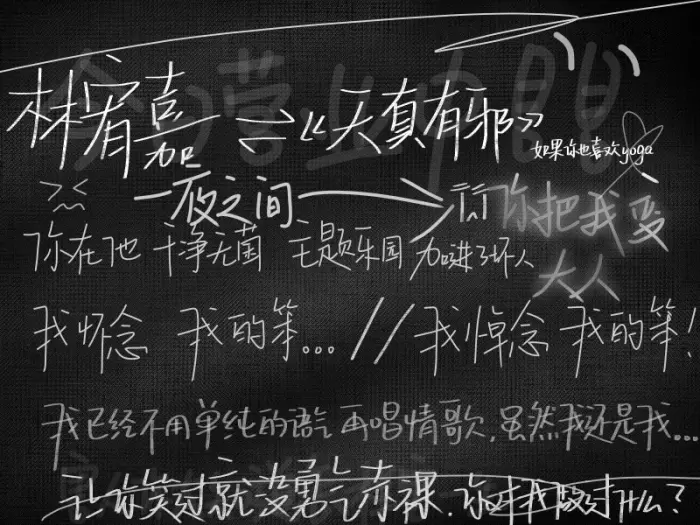 林宥嘉 ⇌《天真有邪》
如果你也喜欢yoga
一夜之间 → 你把我变
大人
你在他 干净无菌 主题乐园 加进了坏人
我怀念 我的笨... // 我悼念 我的笨!
我已经不用单纯的语气再唱情歌,虽然我还是我...
让你笑过就没勇气赤裸.你对我做过什么?